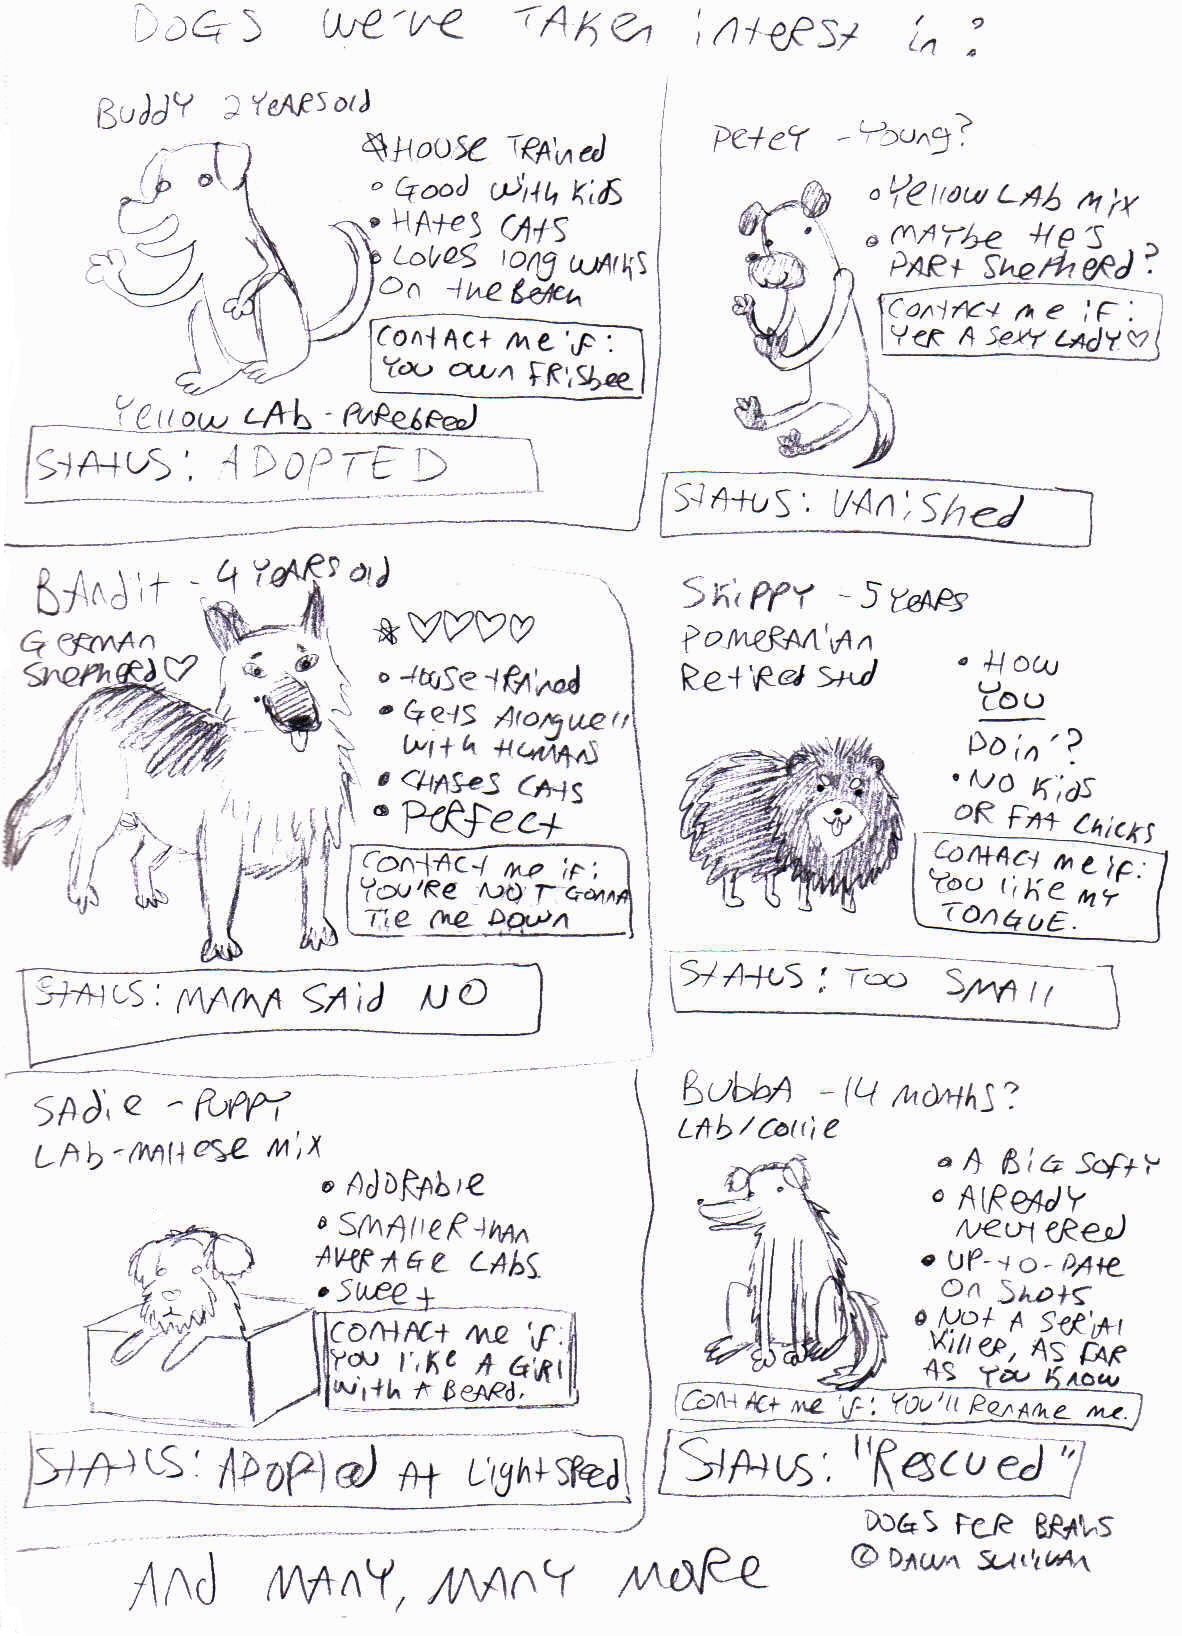 DOGS We've TAKen interest in?
BuddY 2 YeARS old
☆ HOUSE TRAined
◦ Good with Kids
• HAtes CAts
• Loves long WAlks
On the BeAch
Contact me if:
You own FRisbee
Yellow LAb - PURebRed
StAtUS: ADOPTED
PeteY - Young?
◦ Yellow LAb Mix
◦ MAYbe He's
PARt Shepherd?
Contact me if:
YER A SexY LAdY ♡
StAtuS: VAniShed
BAndit - 4 YeARS old
GeRMAn
ShepheRd ♡
☆ ♡♡♡♡
• House trAined
• Gets Along well
with HuMAnS
• CHASes CAts
• PeRFect
Contact me if:
YOU'Re NOT GonnA
Tie me Down
StAtUS: MAMA SAid NO
SkiPPY - 5 YeARS
POMeRAniAn
RetiRed Stud
• How
YOU
Doin'?
• NO Kids
OR FAt Chicks
ContAct me if:
You like MY
TONGUE.
StAtuS: TOO SMAll
SAdie - PuPPY
LAb-MAltese Mix
• AdoRAble
• SMAlleR thAn
AVeRAGe LAbs.
• Sweet
ContAct me if:
You like A GiRl
with A BeARd.
StAtUS: ADOPted At LightSPeed
BubbA - 14 Months?
LAb/Collie
• A BiG SoftY
• AlReAdY
NeuteRed
• UP-to-DAte
On Shots
• Not A SeRiAl
KilleR, AS FAR
AS You Know
ContAct me if: You'll RenAMe me.
StAtuS: "Rescued"
DOGS FOR BRAins
© DAwn Sullivan
And MAnY, MAnY MoRe